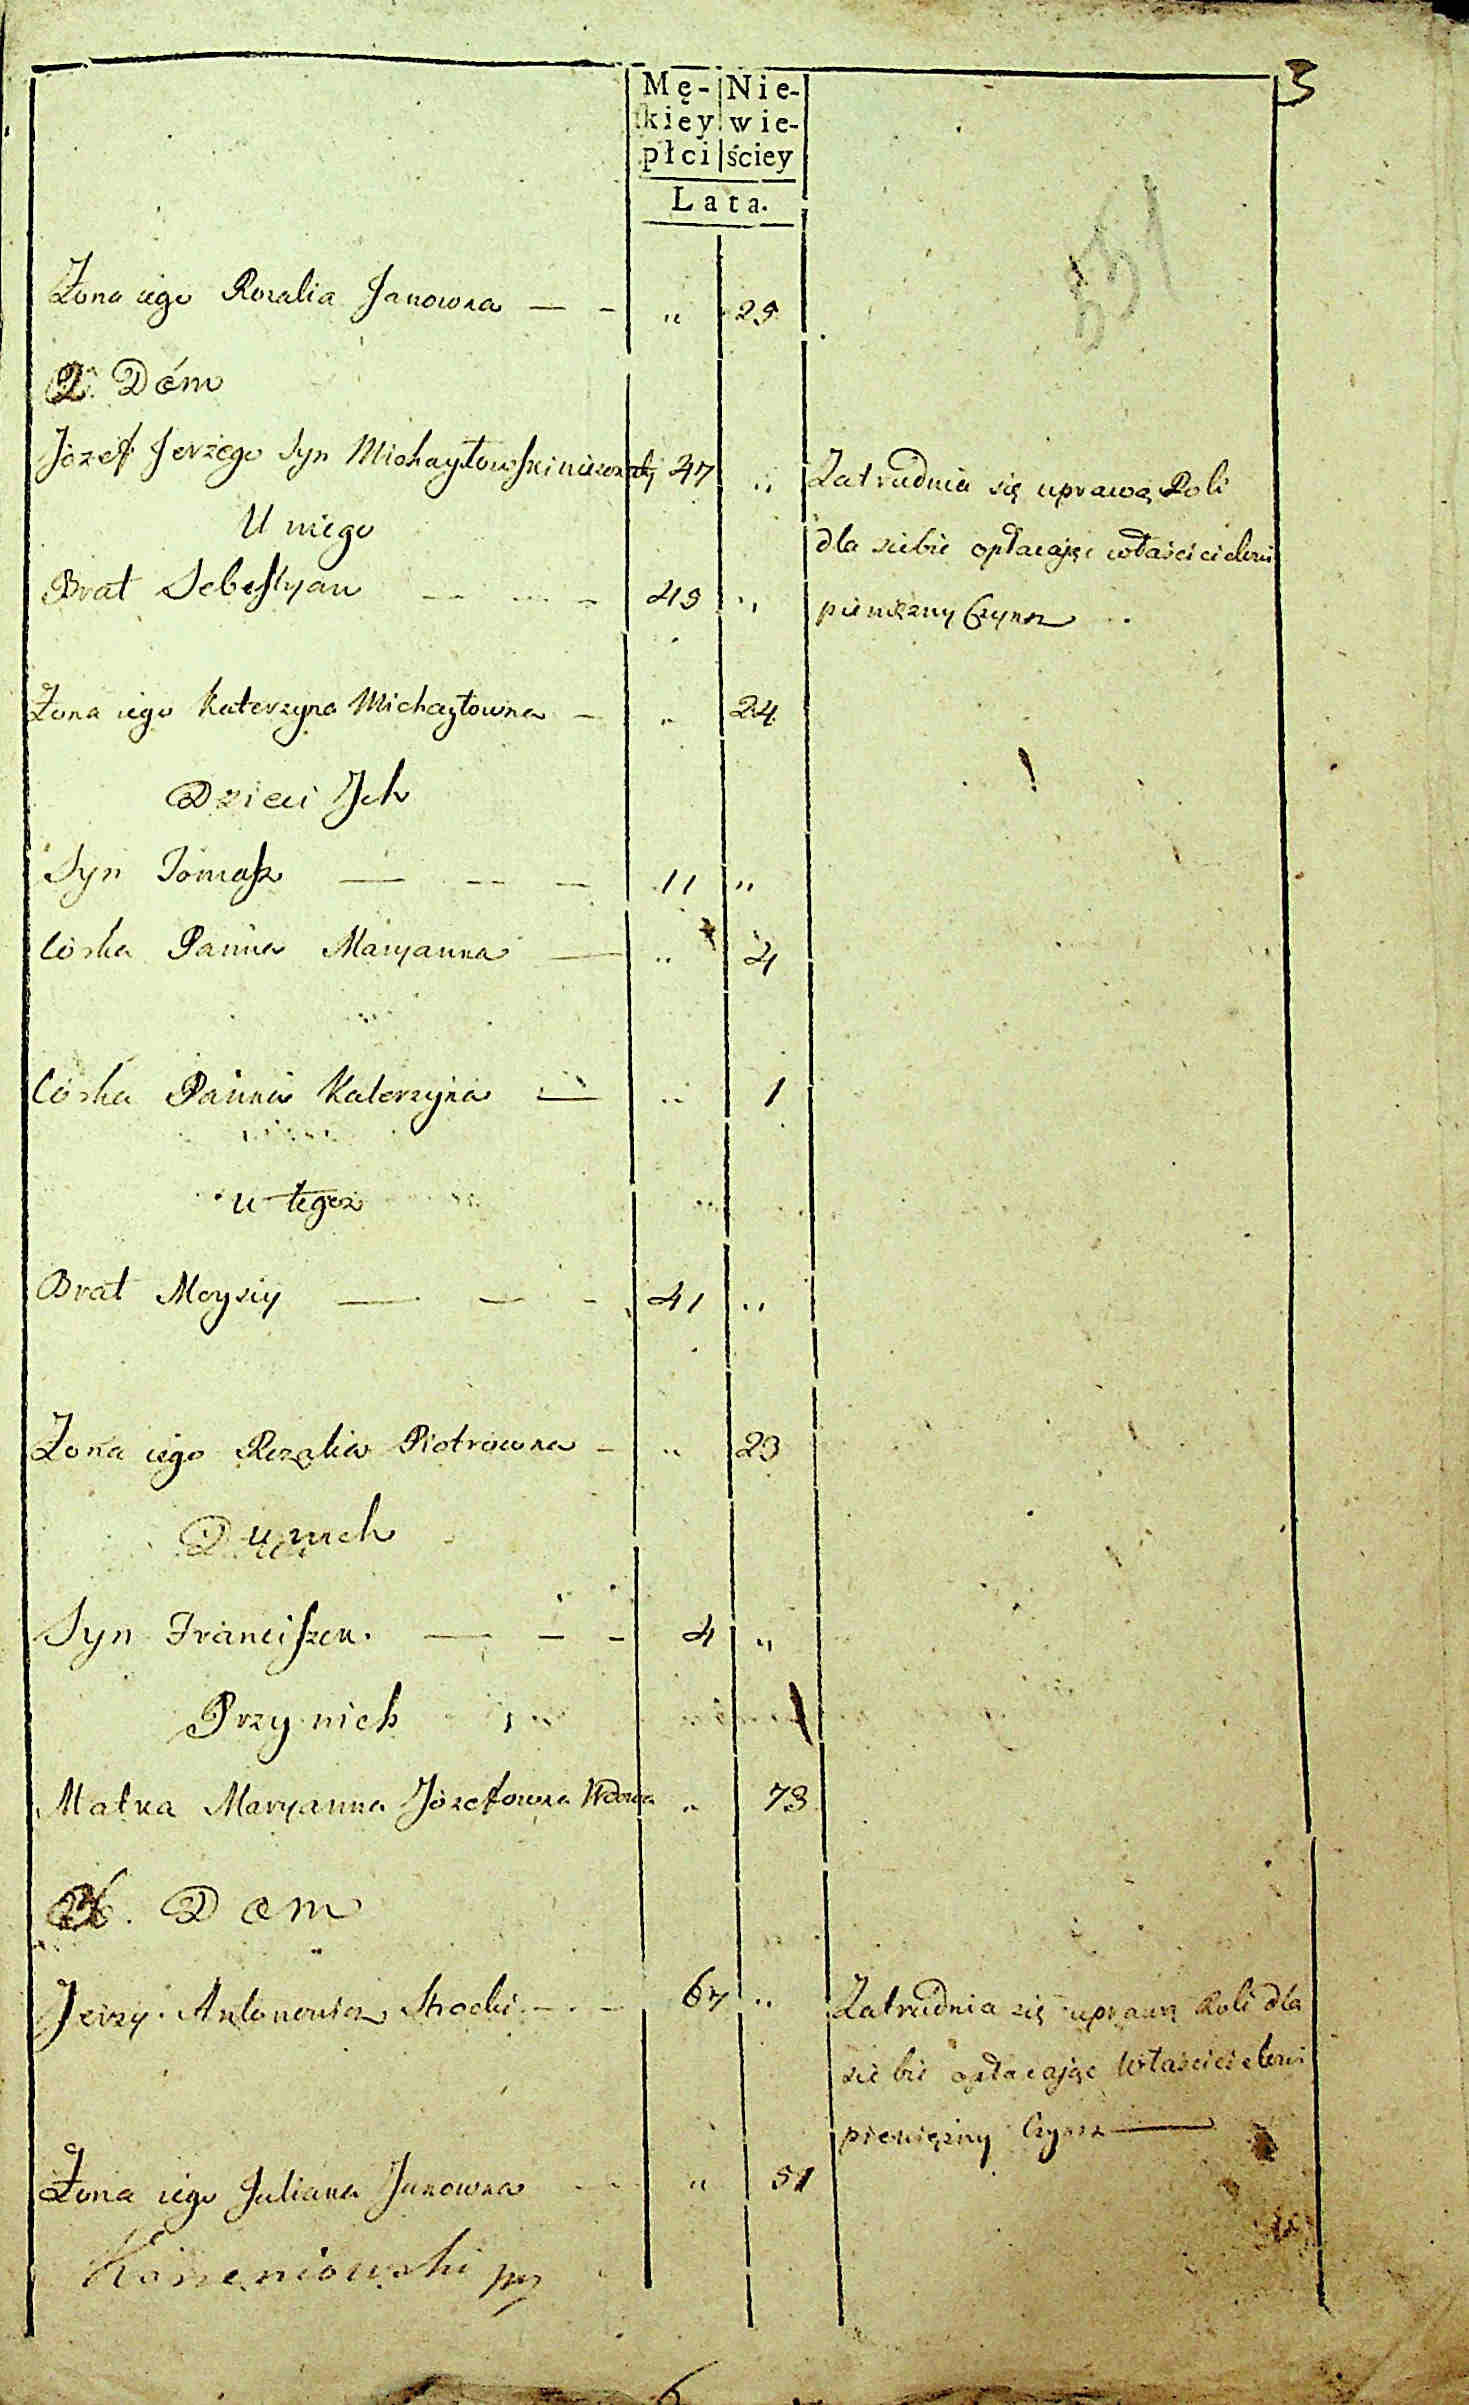 3
Mę- Nie-
skiey wie-
płci ściey
Lata.
551
Żona iego Rozalia Janowna — - „ 29
2. Dóm
Józef Jerzego Syn Michayłowski nieżonaty 47 „ Zatrudnia się uprawą Roli
U niego
dla siebie opłacaiąc właścicielowi
Brat Sebestyan — — - 49 „ pieniężny Czynsz
Żona iego Katerzyna Michayłowna - „ 24
Dzieci Jch
Syn Tomasz — — - 11 „
Córka Panna Maryanna — „ 4
Córka Panna Katerzyna — „ 1
u tegoż
Brat Moysiy — — - 41 „
Żona iego Rozalia Piotrowna - „ 23
u nich
Syn Franciszek — - - 4 „
Przy nich
Matka Maryanna Józefowna Wdowa „ 73
Dom
Jerzy Antonowicz — - 67 „ Zatrudnia się uprawą Roli dla
siebie opłacając Właścicielowi
pieniężny Czynsz —
Żona iego Juliana Janowna „ 51
Korzeniowski